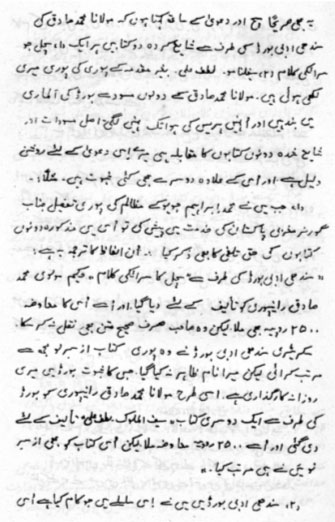 یہ بھی صریحاً سچ اور دعویٰ کے ساتھ کہتا ہوں کہ مولانا محمد صادق کی
سندھی ادبی بورڈ کی طرف سے شایع کردہ دو کتابیں ہر ایک ۱۔ سچل جو
سرائکی کلام ۲۔ لطف علی۔ بغیر مقدمہ کے پوری کی پوری میری
لکھی ہوئی ہیں۔ مولانا محمد صادق کے دونوں مسودے بورڈ کی الماری
میں بند ہیں اور انہیں پریس کی ہوا تک نہیں لگی اصل مسودات اور
شایع شدہ دونوں کتابوں کا مقابلہ ہی میرے اس دعویٰ کے لئے روشن
دلیل ہے۔ اور اس کے علاوہ دوسرے بھی کئی ثبوت ہیں۔ مثلاً:۔
۱۔ جب میں نے محمد ابراہیم جویو کے مظالم کی پوری تفصیل جناب
گورنر مغربی پاکستان کی خدمت میں پیش کی تو اس میں مذکورہ دونوں
کتابوں کی حق تلفی کا بھی ذکر کیا۔ ان الفاظ کا ترجمہ یہ ہے:
"سندھی ادبی بورڈ کی طرف سے سچل کا سرائکی کلام" حکیم مولوی محمد
صادق رانیپوری کو تالیف کے لئے دیا گیا۔ اور اسے اس کا معاوضہ
۲۵۰۰ روپیہ بھی ملا لیکن وہ صاحب صرف صحیح متن بھی نقل نہ کر سکا۔
سیکریٹری سندھی ادبی بورڈ نے وہ پوری کتاب از سر نو مجھ سے
مرتب کرائی لیکن میرا نام ظاہر نہ کیا گیا۔ جس کا ثبوت بورڈ میں میری
روزانہ کارگذاری ہے۔ اسی طرح مولانا محمد صادق رانیپوری کو بورڈ
کی طرف سے ایک دوسری کتاب۔ سیف الملوک لطف علی تالیف کے لئے
دی گئی اور اسے ۲۵۰۰ روپیہ معاوضہ ملا لیکن اس کتاب کو بھی از سر
نو میں نے ہی مرتب کیا۔"
۲۔ سندھی ادبی بورڈ میں میں نے اس سلسلے میں جو کام کیا ہے اس